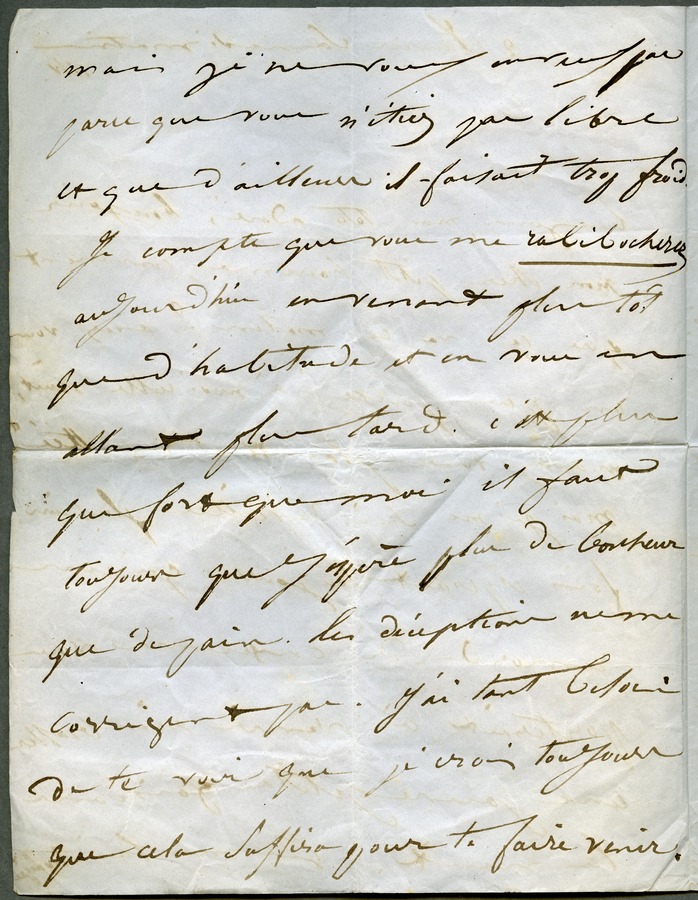 mais je ne vous en veux pas
parce que vous n'étiez pas libre
et que d'ailleurs il faisait trop froid.
Je compte que vous me rabibocherez
aujourd'hui en venant plus tôt
que d'habitude et en vous en
allant plus tard. c'est plus
que fort que moi il faut
toujours que j'espère plus de bonheur
que de pain. les déceptions ne me
corrigent pas. J'ai tant besoin
de te voir que je crois toujours
que cela suffira pour te faire venir.